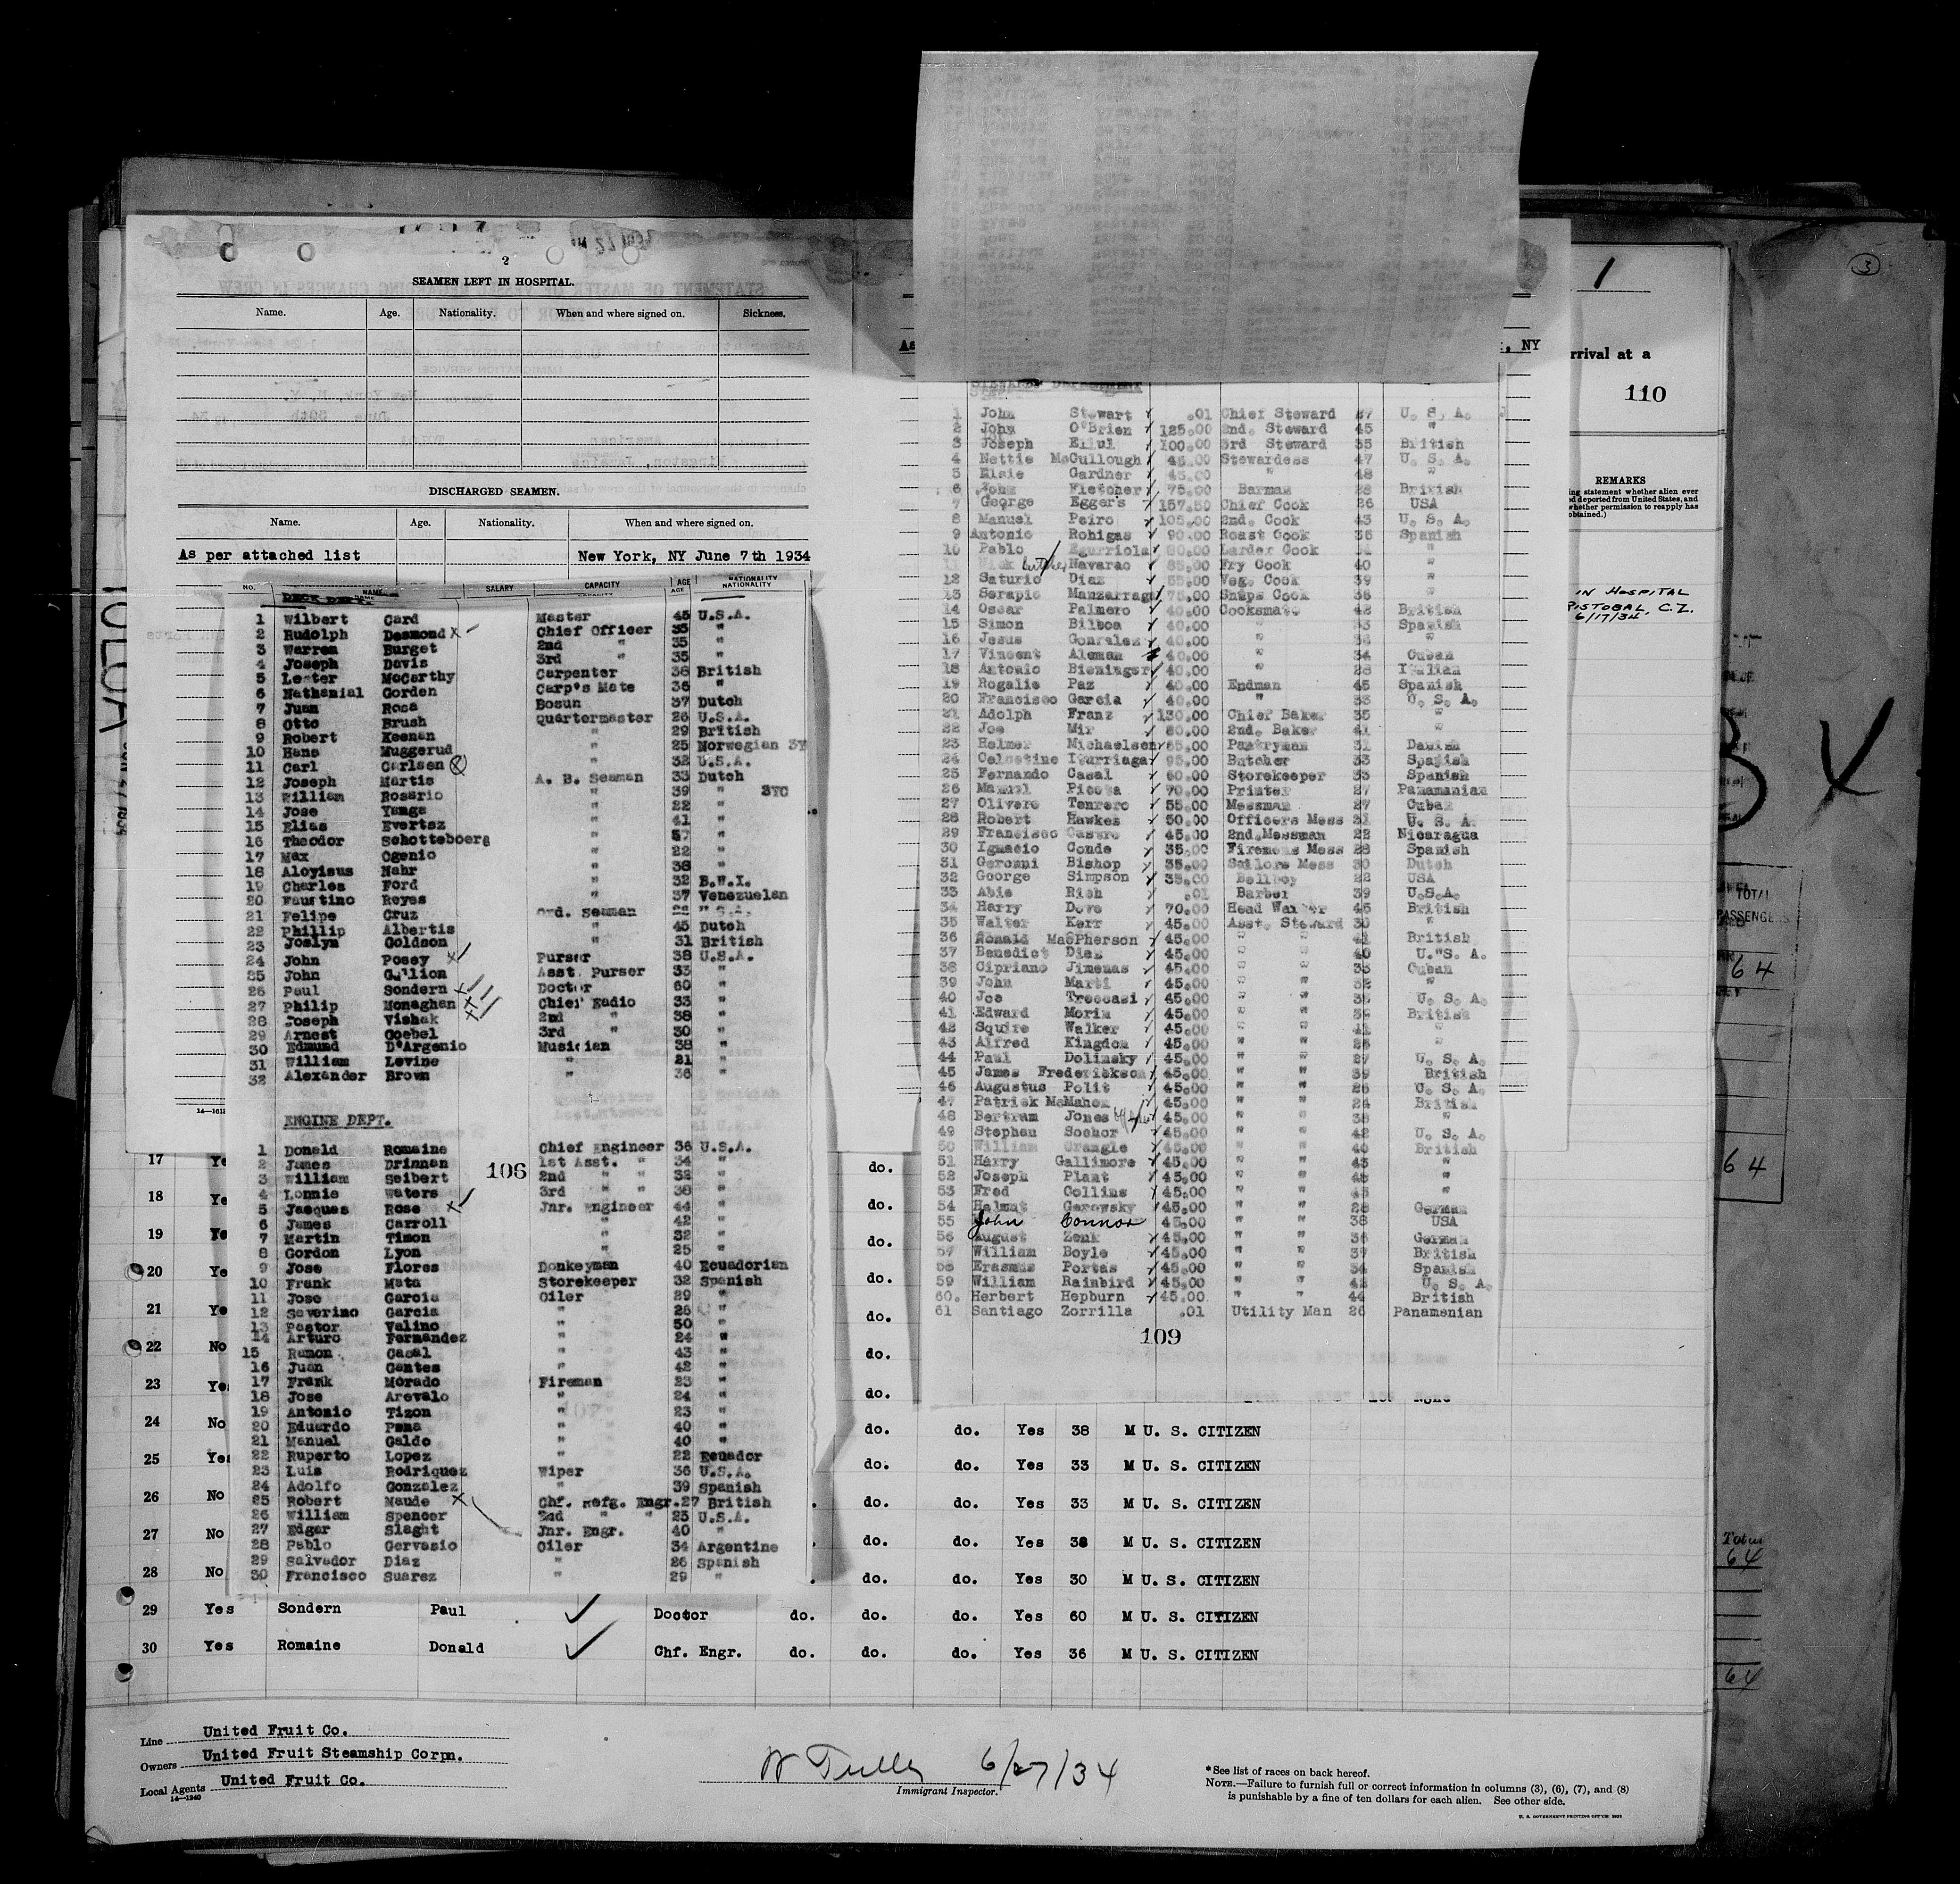 2
SEAMEN LEFT IN HOSPITAL.
Name. Age. Nationality. When and where signed on. Sickness.
DISCHARGED SEAMEN.
Name. Age. Nationality. When and where signed on.
As per attached list New York, NY June 7th 1934
NO. NAME SALARY CAPACITY AGE NATIONALITY
DECK DEPT.
1 Wilbert Card Master 45 U.S.A.
2 Rudolph Desmond Chief Officer 35 "
3 Warren Burget 2nd " 35 "
4 Joseph Davis 3rd " 35 "
5 Lester McCarthy Carpenter 36 British
6 Nathanial Gorden Carp's Mate 36 "
7 Juan Rosa Bosun 37 Dutch
8 Otto Brush Quartermaster 26 U.S.A.
9 Robert Keenan " 29 British
10 Hans Muggerud " 25 Norwegian 3Y
11 Carl Carlsen " 32 U.S.A.
12 Joseph Martis A. B. Seaman 33 Dutch
13 William Rosario " 39 " 3YC
14 Jose Yanga " 22 "
15 Elias Evertsz " 41 "
16 Theodor Schotteboerg " "
17 Max Ogenio " 22 "
18 Aloyisus Nahr " 38 "
19 Charles Ford " 32 B.W.I.
20 Faustino Reyes " 37 Venezuelan
21 Felipe Cruz Ord. Seaman
22 Phillip Albertis " 45 Dutch
23 Joslyn Goldson " 31 British
24 John Posey Purser 38 U.S.A.
25 John Asst. Purser 33 "
26 Paul Sondern Doctor 60 "
27 Philip Monaghan Chief Radio 33 "
28 Joseph Vishak 2nd " 38 "
29 Arnest Goebel 3rd " 30 "
30 Edmund D'Argenio Musician 38 "
31 William Levine " 21 "
32 Alexander Brown " 36 "
ENGINE DEPT.
1 Donald Romaine Chief Engineer 36 U.S.A.
2 James Drinnan 1st Asst. " 34 "
3 William Seibert 2nd " " 32 "
4 Lonnie Waters 3rd " " 38 "
5 Jacques Rose Jnr. Engineer 44 "
6 James Carroll " 42 "
7 Martin Timon " 32 "
8 Gordon Lyon " 25 "
9 Jose Flores Donkeyman 40 Ecuadorian
10 Frank Mata Storekeeper 32 Spanish
11 Jose Garcia Oiler 29 "
12 Severino Garcia " 26 "
13 Pastor Valino " 50 "
14 Arturo Fernandez " 24 "
15 Ramon Casal " 43 "
16 Juan Gantes " 42 "
17 Frank Morado Fireman 23 "
18 Jose Arevalo " 24 "
19 Antonio Tizon " 23 "
20 Eduardo Pena " 40 "
21 Manuel Galdo " 40 "
22 Ruperto Lopez " 22 Ecuador
23 Luis Rodriquez Wiper 36 U.S.A.
24 Adolfo Gonzalez " 39 Spanish
25 Robert Maude Chf. Refg. Engr. 27 British
26 William Spencer 2nd " " 25 U.S.A.
27 Edgar Slaght Jnr. Engr. 40 "
28 Pablo Gervasio Oiler 34 Argentine
29 Salvador Diaz " 26 Spanish
30 Francisco Suarez " 29 "
106
, NY
STEWARD DEPARTMENT
1 John Stewart .01 Chief Steward U. S. A.
2 John O'Brien 125.00 2nd. Steward 45 "
3 Joseph 100.00 3rd Steward 35 British
4 Nettie McCullough 45.00 Stewardess 47 U. S. A.
5 Elsie Gardner 45.00 48 "
6 John Fletcher 75.00 Barman 28 British
7 George Eggers 157.50 Chief Cook 26 USA
8 Manuel Peiro 105.00 2nd. Cook 43 U. S. A.
9 Antonio Rohigas 90.00 Roast Cook 36 Spanish
10 Pablo Egurriola Larder Cook "
11 Navarao Fry Cook 40 "
12 Saturio Diaz 55.00 Veg. Cook 39 "
13 Serapio Manzarraga 75.00 Snaps Cook 36 "
14 Oscar Palmero 40.00 Cooksmate 42 British
15 Simon Bilboa 40.00 " 33 Spanish
16 Jesus Gonzalez 40.00 " "
17 Vincent Aleman 40.00 " 34 Cuban
18 Antonio Bieninger 40.00 " 28 Italian
19 Rogalie Paz 40.00 Endman 45 Spanish
20 Francisco Garcia 40.00 " 33 U. S. A.
21 Adolph Franz 130.00 Chief Baker 35 "
22 Joe Mir 80.00 2nd. Baker 41 "
23 Helmer Michaelsen Pantryman 31 Danish
24 Celestine Iturriaga 95.00 Butcher 33 Spanish
25 Fernando Casal 60.00 Storekeeper 33 Spanish
26 Manuel Picota 70.00 Printer 27 Panamanian
27 Olivero Tenrero 55.00 Messman 27 Cuban
28 Robert Hawkes 50.00 Officers Mess 21 U. S. A.
29 Francisco Castro 45.00 2nd.Messman 22 Nicaragua
30 Igmacio Conde 35.00 Firemens Mess 28 Spanish
31 Geromni Bishop 35.00 Sailors Mess 30 Dutch
32 George Simpson 35.00 Bellboy 22 USA
33 Abie Rich .01 Barber 39 U.S.A.
34 Harry Dove 70.00 Head Waiter 45 British
35 Walter Kerr 45.00 Asst. Steward 30 "
36 Ronald MacPherson 45.00 " " 41 British
37 Benedict Diaz 45.00 " " 40 U. S. A.
38 Cipriano Jimenas 45.00 " " 33 Cuban
39 John Marti 45.00 " " 32 "
40 Joe Treccasi 45.00 " " U. S. A.
41 Edward Morin 45.00 " " British
42 Squire Walker 45.00 " " 41 "
43 Alfred Kingdom 45.00 " " 25 "
44 Paul Dolinsky 45.00 " " 27 U. S. A.
45 James Frederickson 45.00 " " 39 British
46 Augustus Polit 45.00 " " 26 U. S. A.
47 Patrick McMahon 45.00 " " 24 British
48 Bertram Jones 45.00 " " 38 "
49 Stephen Sochor 45.00 " " 42 U. S. A.
50 William Grangle 45.00 " " 40 British
51 Harry Gallimore 45.00 " " 43 "
52 Joseph Plant 45.00 " " "
53 Fred Collins 45.00 " " "
54 Helmut Gerowsky 45.00 " " 28 German
55 John Connor 45.00 " " 38 USA
56 August Zenk 45.00 " " 36 German
57 William Boyle 45.00 " " 37 British
58 Erasmus Portas 45.00 " " 34 Spanish
59 William Rainbird 45.00 " " 42 U. S. A.
60. Herbert Hepburn 45.00 " " 44 British
61 Santiago Zorrilla .01 Utility Man 26 Panamanian
109
1
rrival at a
110
REMARKS
ing statement whether alien ever
ed deported from United States, and
whether permission to reapply has
obtained.)
IN HOSPITAL
RISTOBAL, C.Z.
6/17/34
3
TOTAL
PASSENGERS
64
64
Total
64
64
17 Ye do.
18 Ye do.
19 Ye do.
20 Ye do.
21 Ye do.
22 No do.
23 Ye do.
24 No do. do. Yes 38 M U. S. CITIZEN
25 Yes do. do. Yes 33 M U. S. CITIZEN
26 No do. do. Yes 33 M U. S. CITIZEN
27 No do. do. Yes 38 M U. S. CITIZEN
28 No do. do. Yes 30 M U. S. CITIZEN
29 Yes Sondern Paul Doctor do. do. do. Yes 60 M U. S. CITIZEN
30 Yes Romaine Donald Chf. Engr. do. do. do. Yes 36 M U. S. CITIZEN
Line United Fruit Co.
Owners United Fruit Steamship Corpn.
Local Agents United Fruit Co.
14—1240
6/27/34
Immigrant Inspector.
*See list of races on back hereof.
NOTE.—Failure to furnish full or correct information in columns (3), (6), (7), and (8)
is punishable by a fine of ten dollars for each alien. See other side.
U. S. GOVERNMENT PRINTING OFFICE